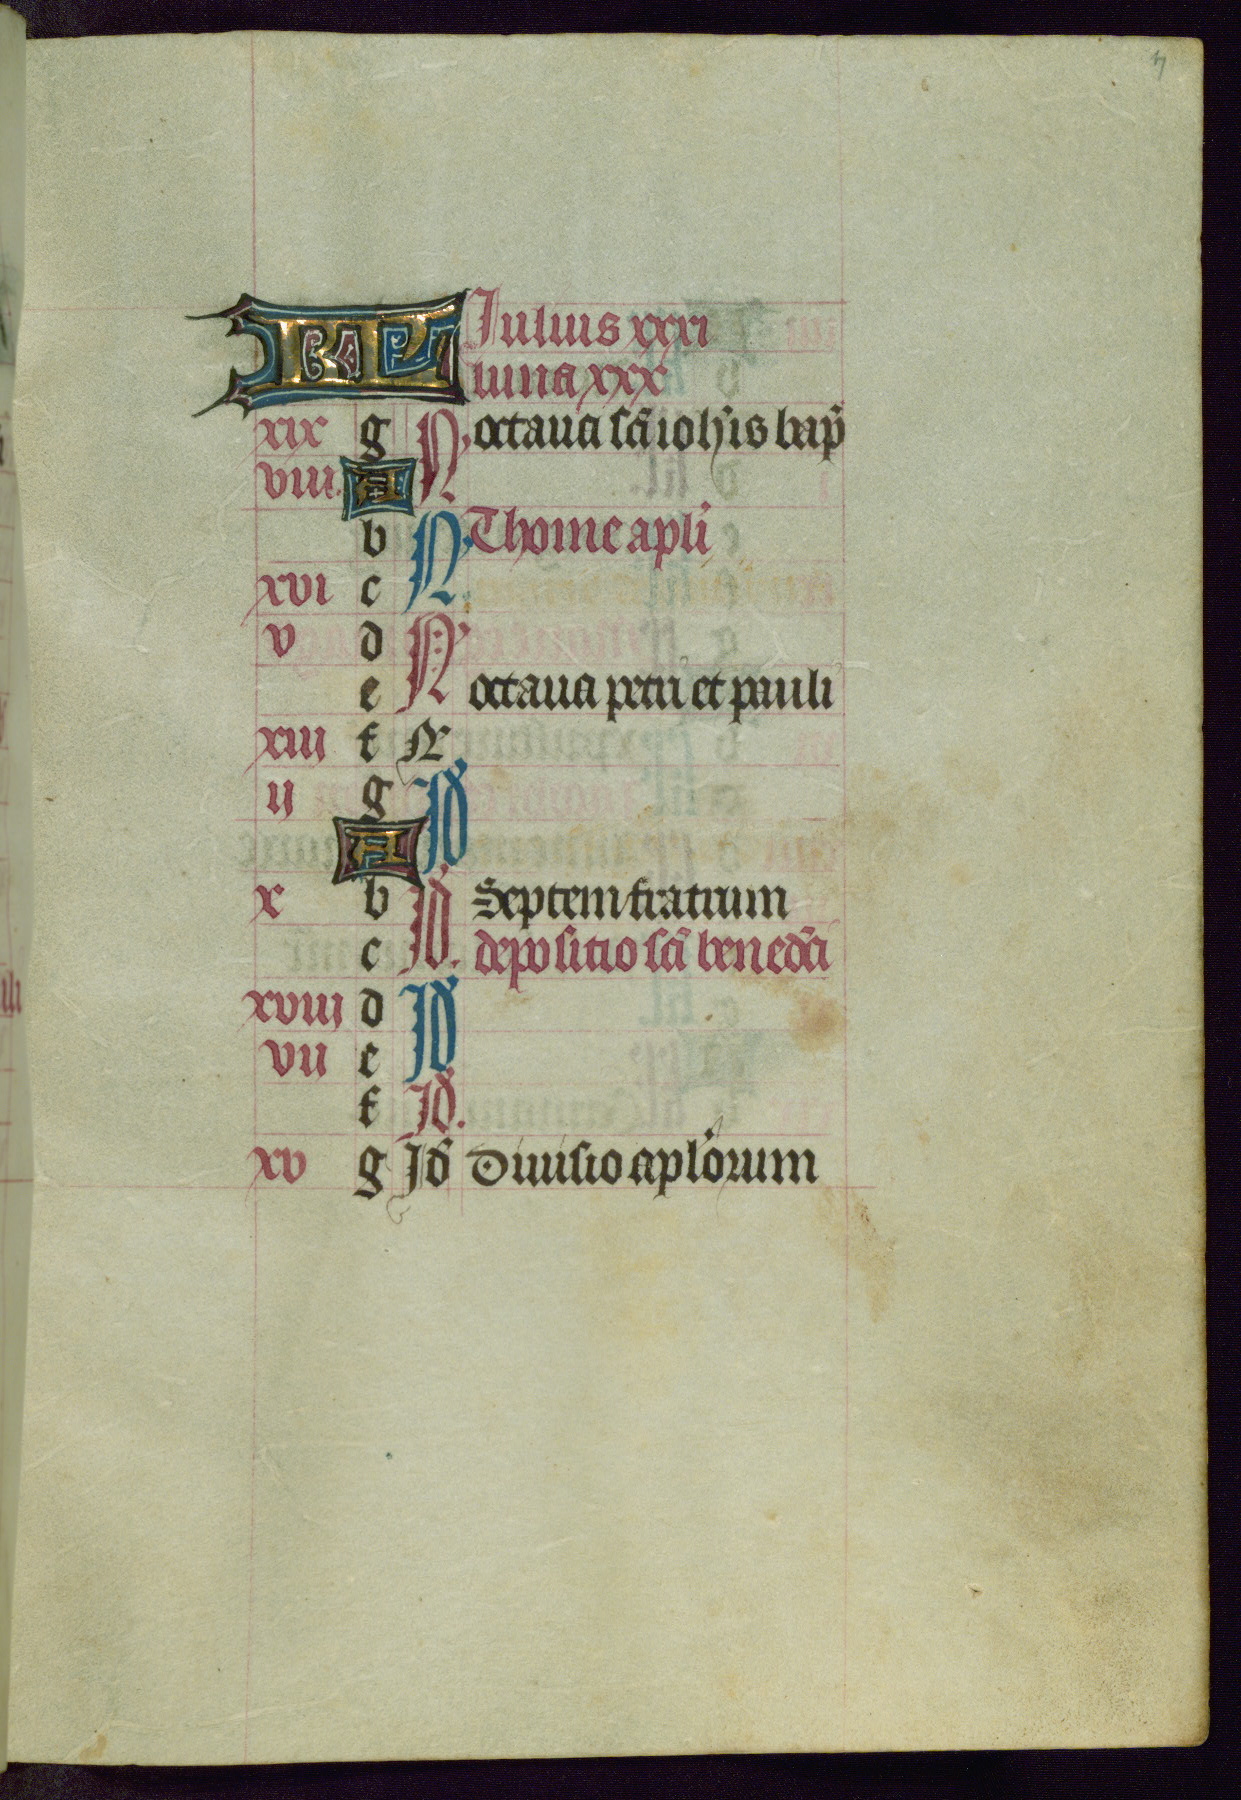 7
KL Iulius xxxi
luna xxx
xix g N octaua sc̄i ioh̄is bap̄
viii. A
b N Thome apl̄i
xvi c
v d N
e octaua petri et pauli
xiii f N̄
ii g Id̄
A
x b Id̄ Septem fratrum
c depositio sc̄i bened̄ci
xviii d Id̄
vii e
f Id̄.
xv g Id̄ Diuisio apl̄orum